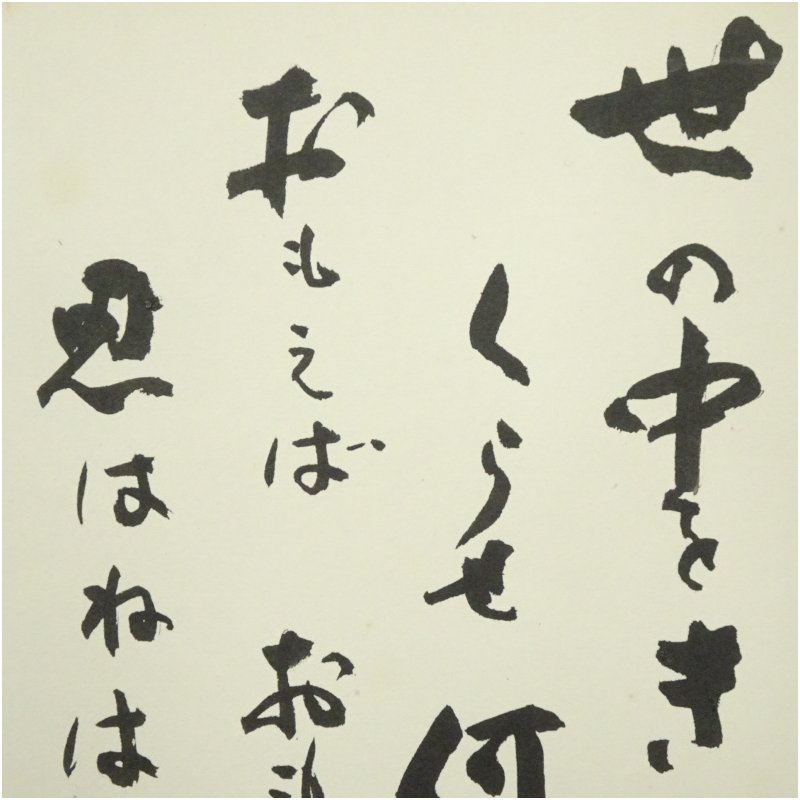 世の中をき
くらせ何
おもえば おも
思はねは